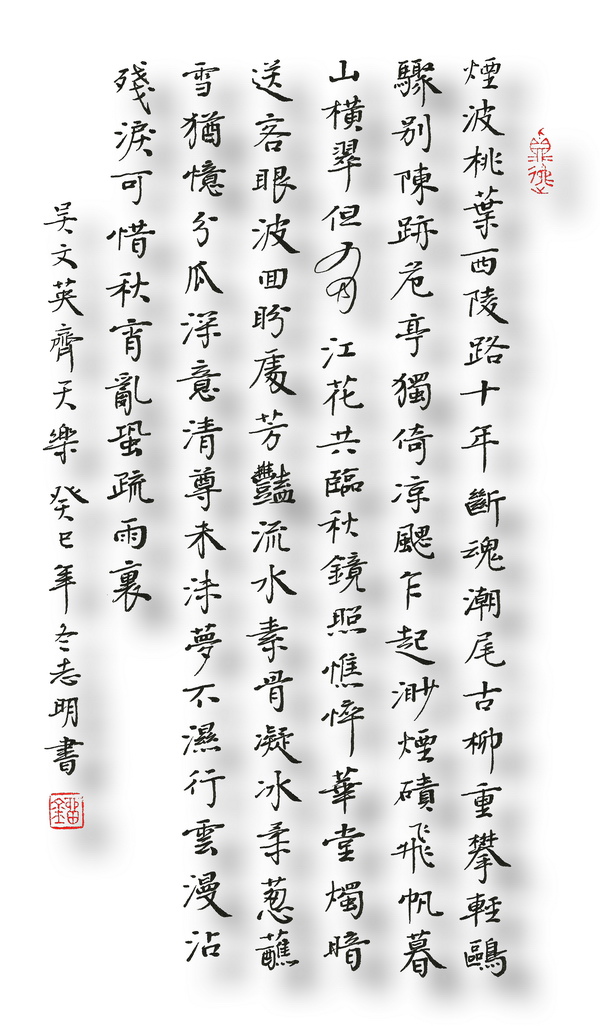 煙波桃葉西陵路十年斷魂潮尾古柳重攀輕鷗
驟別陳跡危亭獨倚凉颸乍起渺煙磧飛帆暮
山橫翠但有江花共臨秋鏡照憔悴華堂燭暗
送客眼波回盼處芳豔流水素骨凝冰柔葱蘸
雪猶憶分瓜深意清尊未洗夢不濕行雲漫沾
殘淚可惜秋宵亂蛩疏雨裏
吴文英齊天樂癸巳年冬志明書